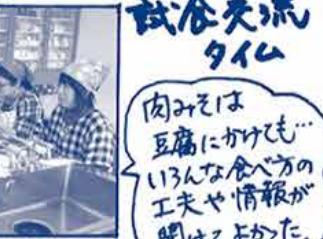 試食交流
タイム
肉みそは
豆腐にかけても…
いろんな食べ方の
工夫や情報が
聞けてよかった。